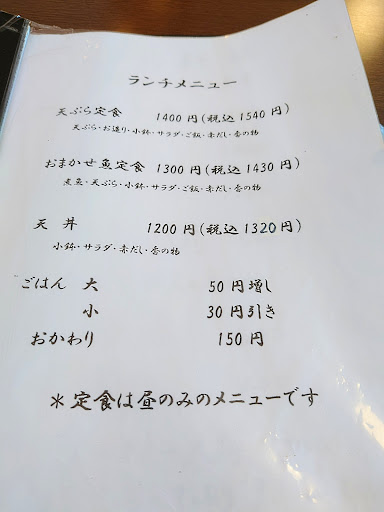 ランチメニュー
天ぷら定食 1400円(税込1540円)
天ぷら・お造り・小鉢・サラダ・ご飯・赤だし・香の物
おまかせ魚定食 1300円(税込1430円)
煮魚・天ぷら・小鉢・サラダ・ご飯・赤だし・香の物
天丼 1200円(税込1320円)
小鉢・サラダ・赤だし・香の物
ごはん 大 50円増し
小 30円引き
おかわり 150円
＊定食は昼のみのメニューです